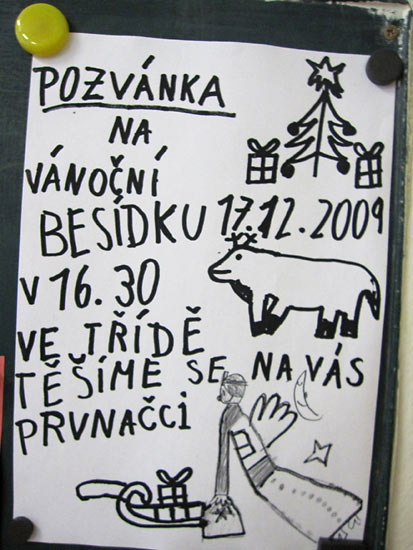 POZVÁNKA
NA
VÁNOČNÍ
BESÍDKU 17.12.2009
V 16.30
VE TŘÍDĚ
TĚŠÍME SE NA VÁS
PRVŇAČCI